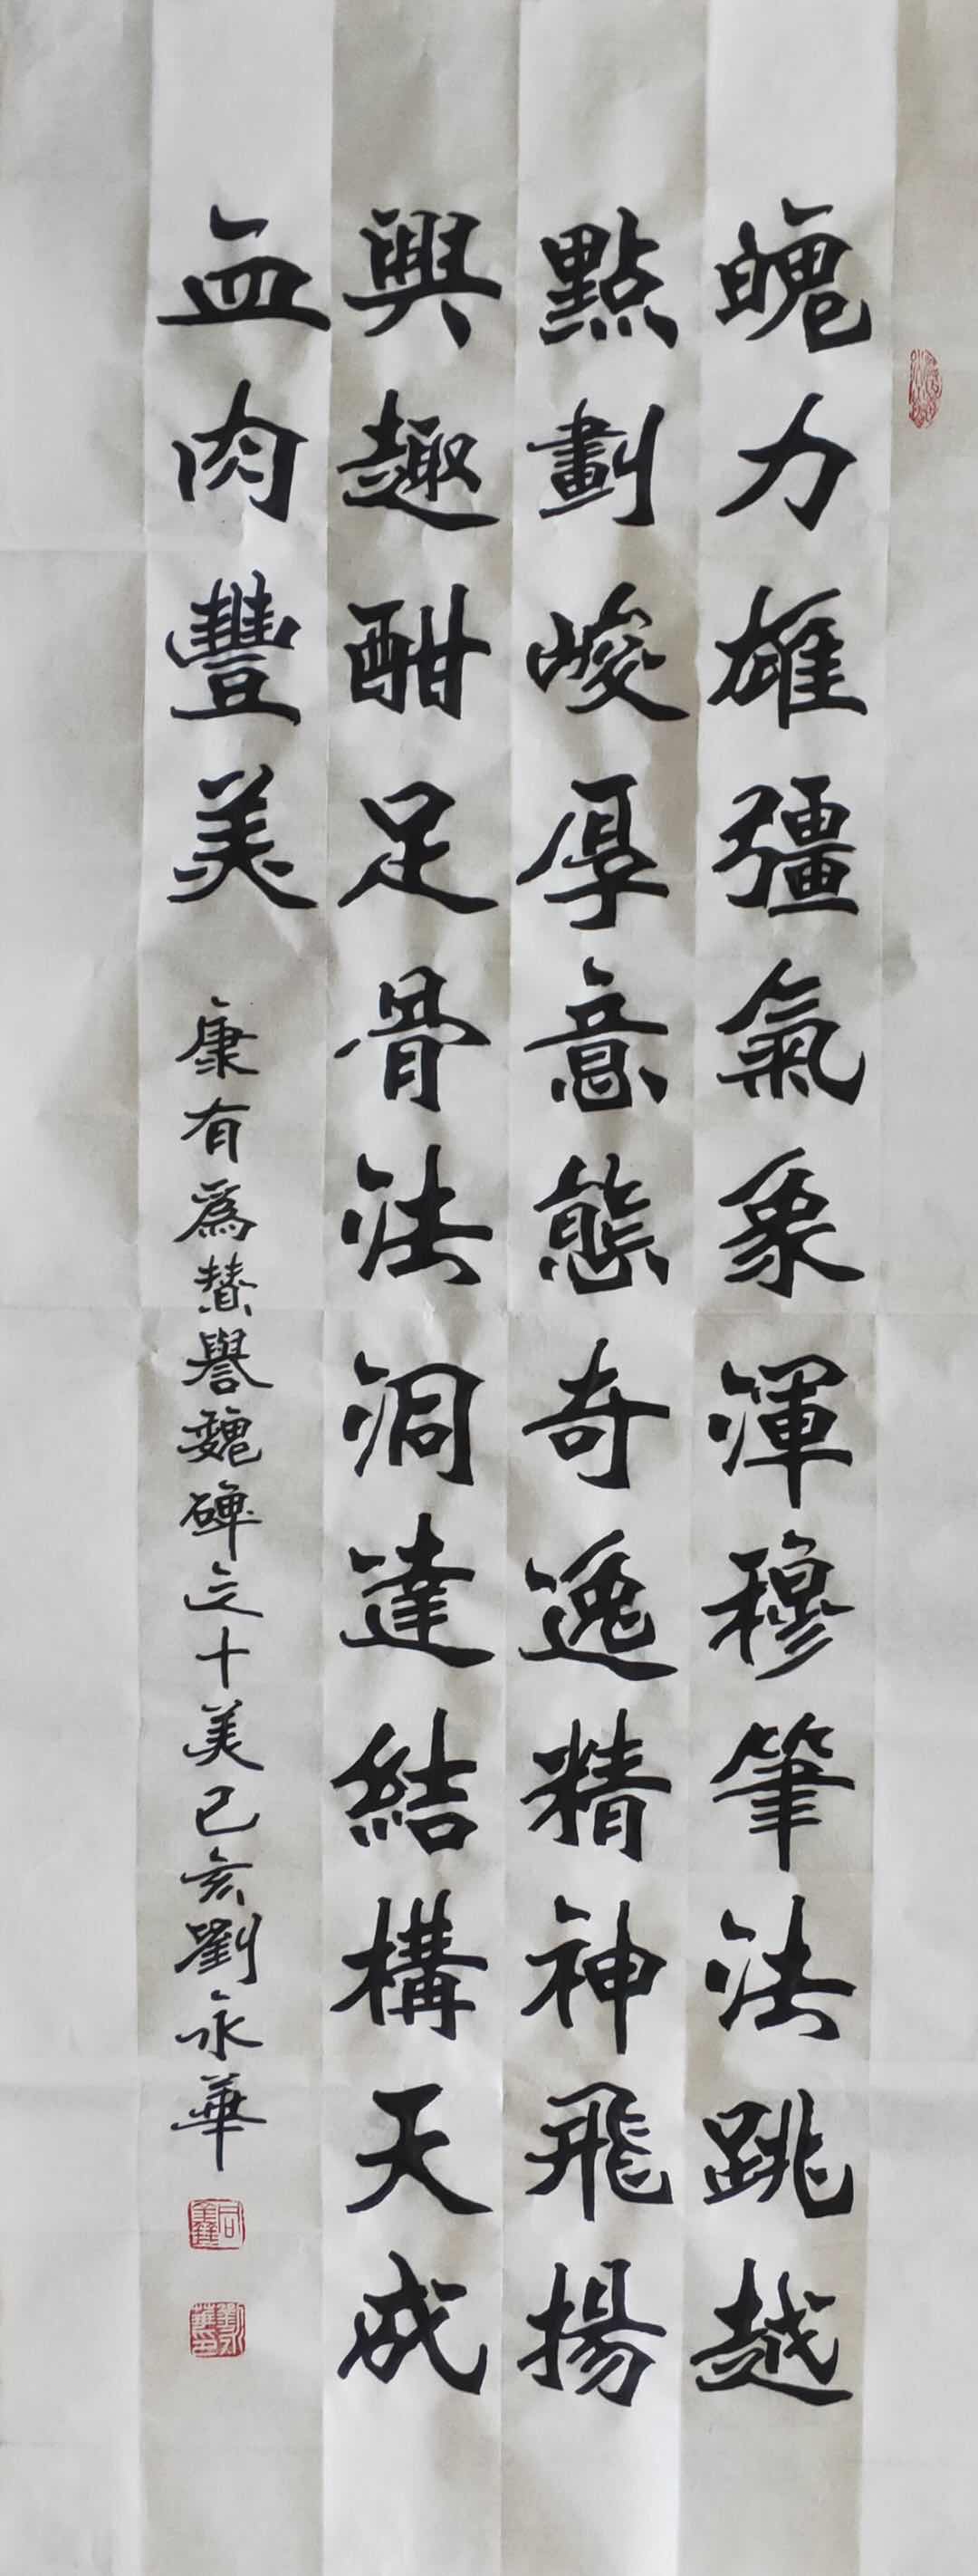 魄力雄彊氣象渾穆筆法跳越
點劃峻厚意態奇逸精神飛揚
興趣酣足骨法洞達結構天成
血肉豐美
康有為贊譽魏碑之十美己亥劉永華
劉永華印